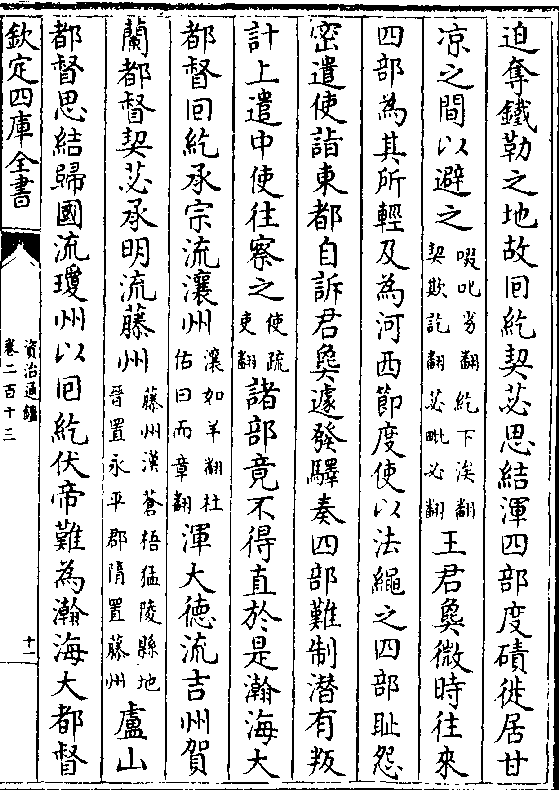 迫奪鐵勒之地故回紇契苾思結渾四部度磧徙居甘
凉之間以避之啜叱劣翻紇下沒翻契欺訖翻苾毗必翻王君㚟微時往來
四部為其所輕及為河西節度使以法繩之四部耻怨
密遣使詣東都自訴君㚟遽發驛奏四部難制潜有叛
計上遣中使往察之使疏吏翻諸部竟不得直於是瀚海大
都督回紇承宗流瀼州瀼如羊翻杜佑曰而章翻渾大德流吉州賀
蘭都督契苾承明流藤州藤州漢蒼梧猛陵縣地晉置永平郡隋置藤州盧山
都督思結歸國流瓊州以回紇伏帝難為瀚海大都督
欽定四庫全書
資治通鑑
卷二百十三
十一